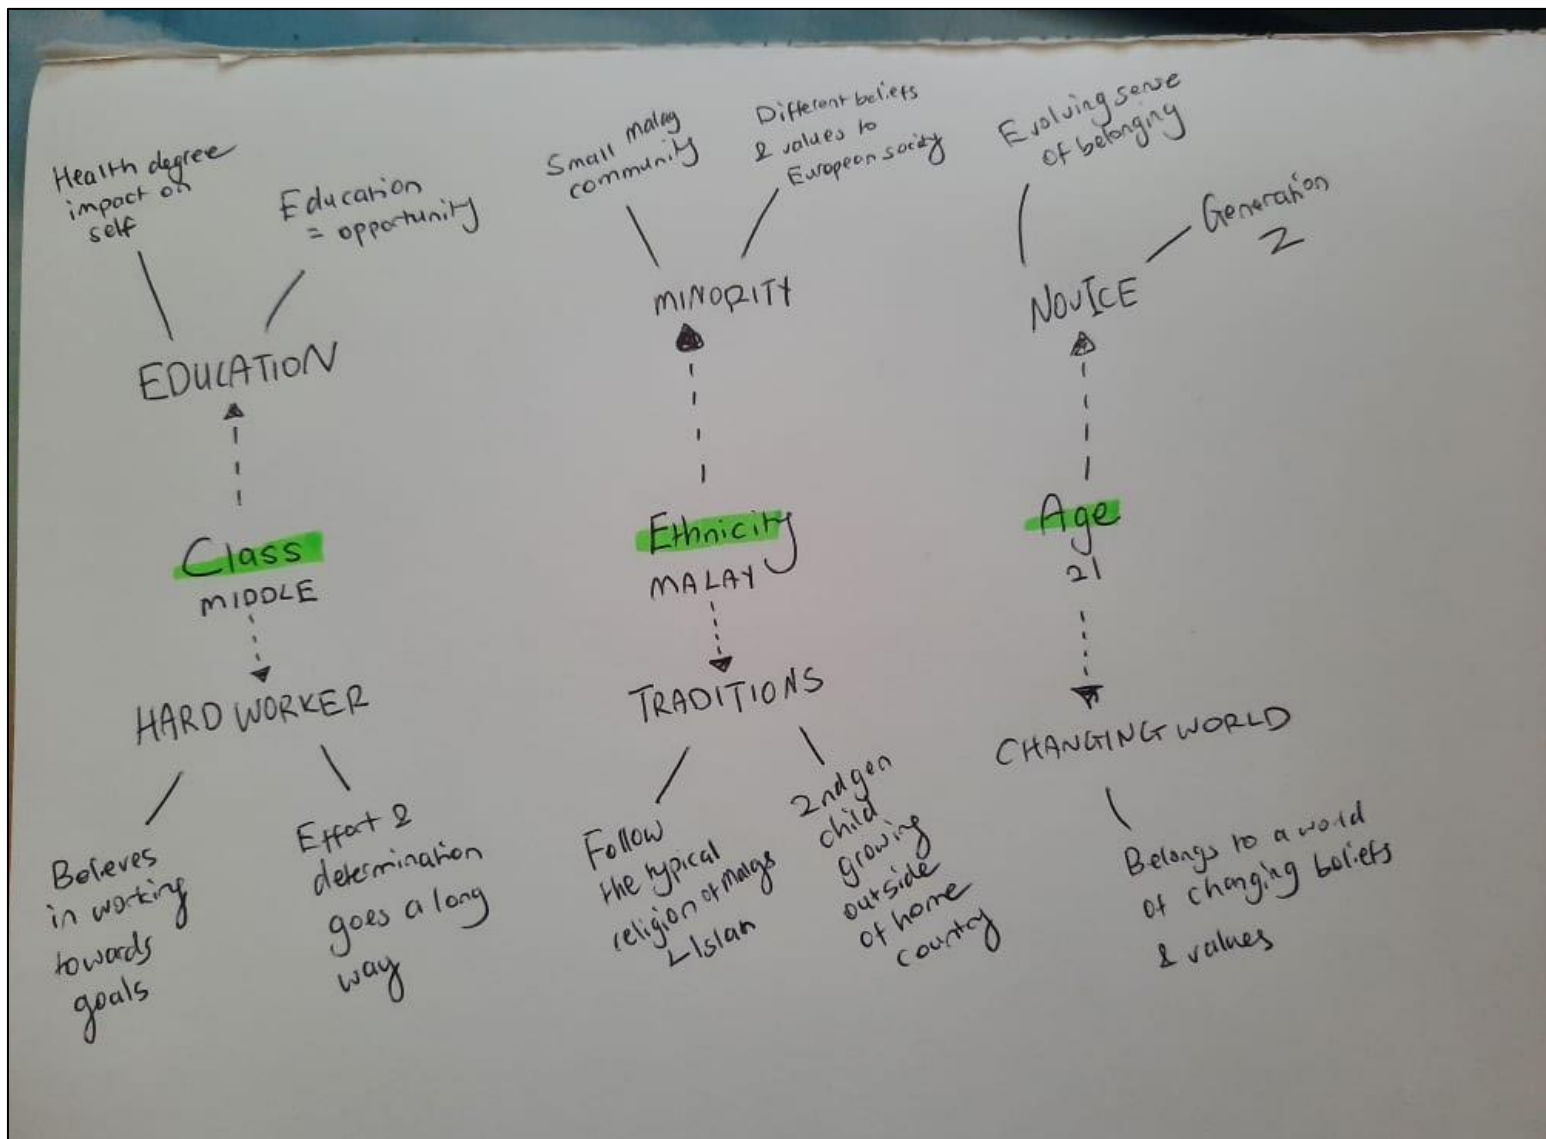 Health degree
impact on
self
Education
= opportunity
EDUCATION
Class
MIDDLE
HARD WORKER
Believes
in working
towards
goals
Effort &
determination
goes a long
way
Small malay
community
Different beliefs
& values to
European society
MINORITY
Ethnicity
MALAY
TRADITIONS
Follow
the typical
religion of malays
Islan
2nd gen
child
growing
outside
of home
country
Evolving sense
of belonging
Generation
Z
NOVICE
Age
21
CHANGING WORLD
Belongs to a world
of changing beliefs
& values